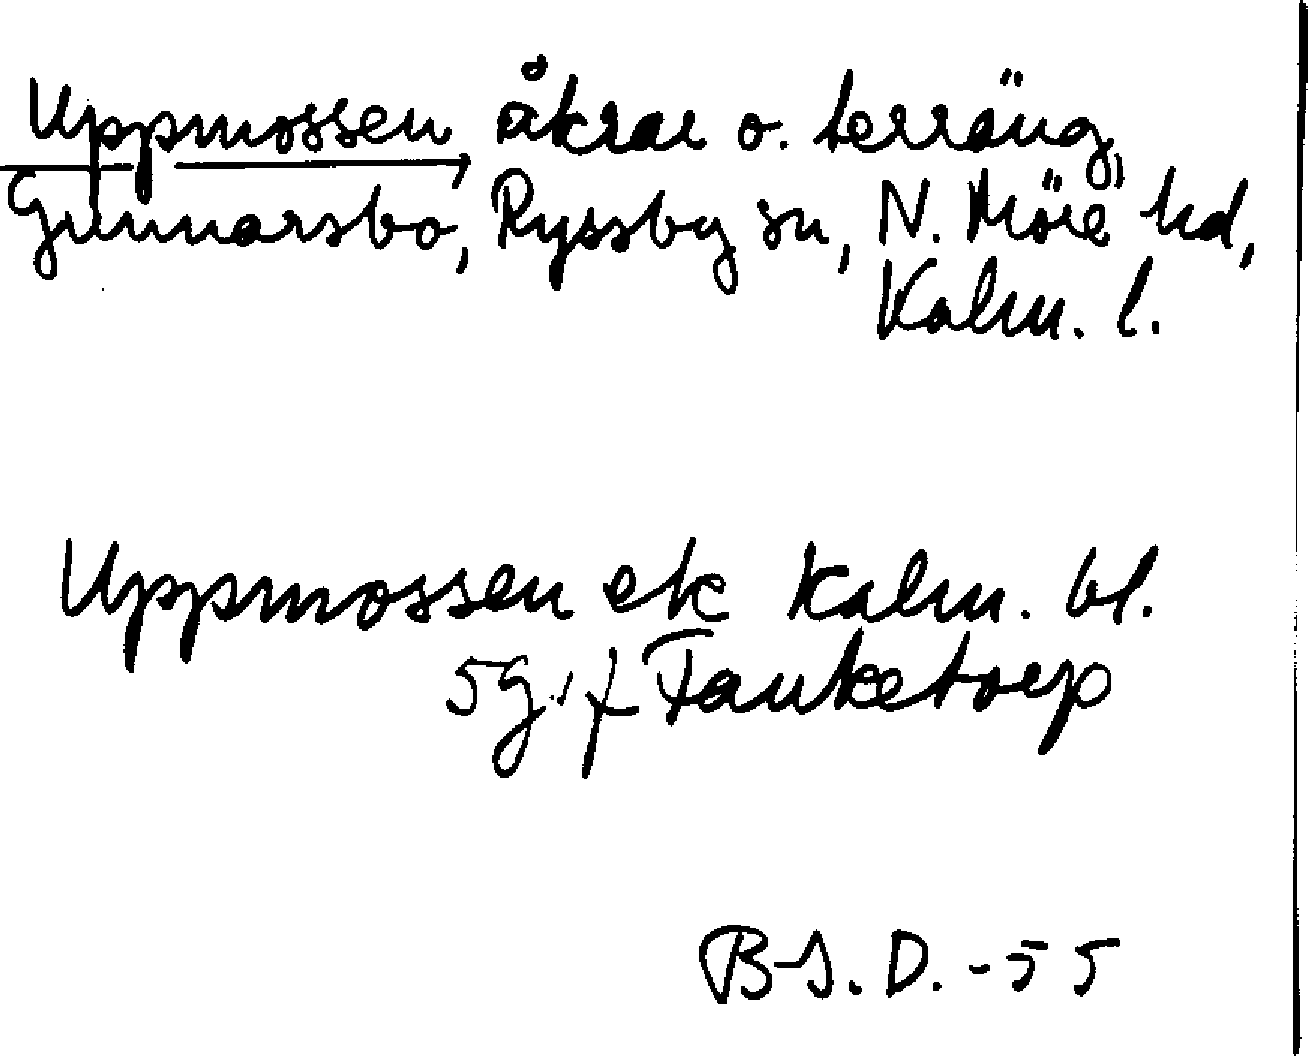 Uppmossen åkrar o. terräng,
Gunnarsbo, Ryssby sn, N. Möre hd,
Kalm. l.
Uppmossen ek Kalm. bl.
5g. f Tanketorp
B-S. D. -55